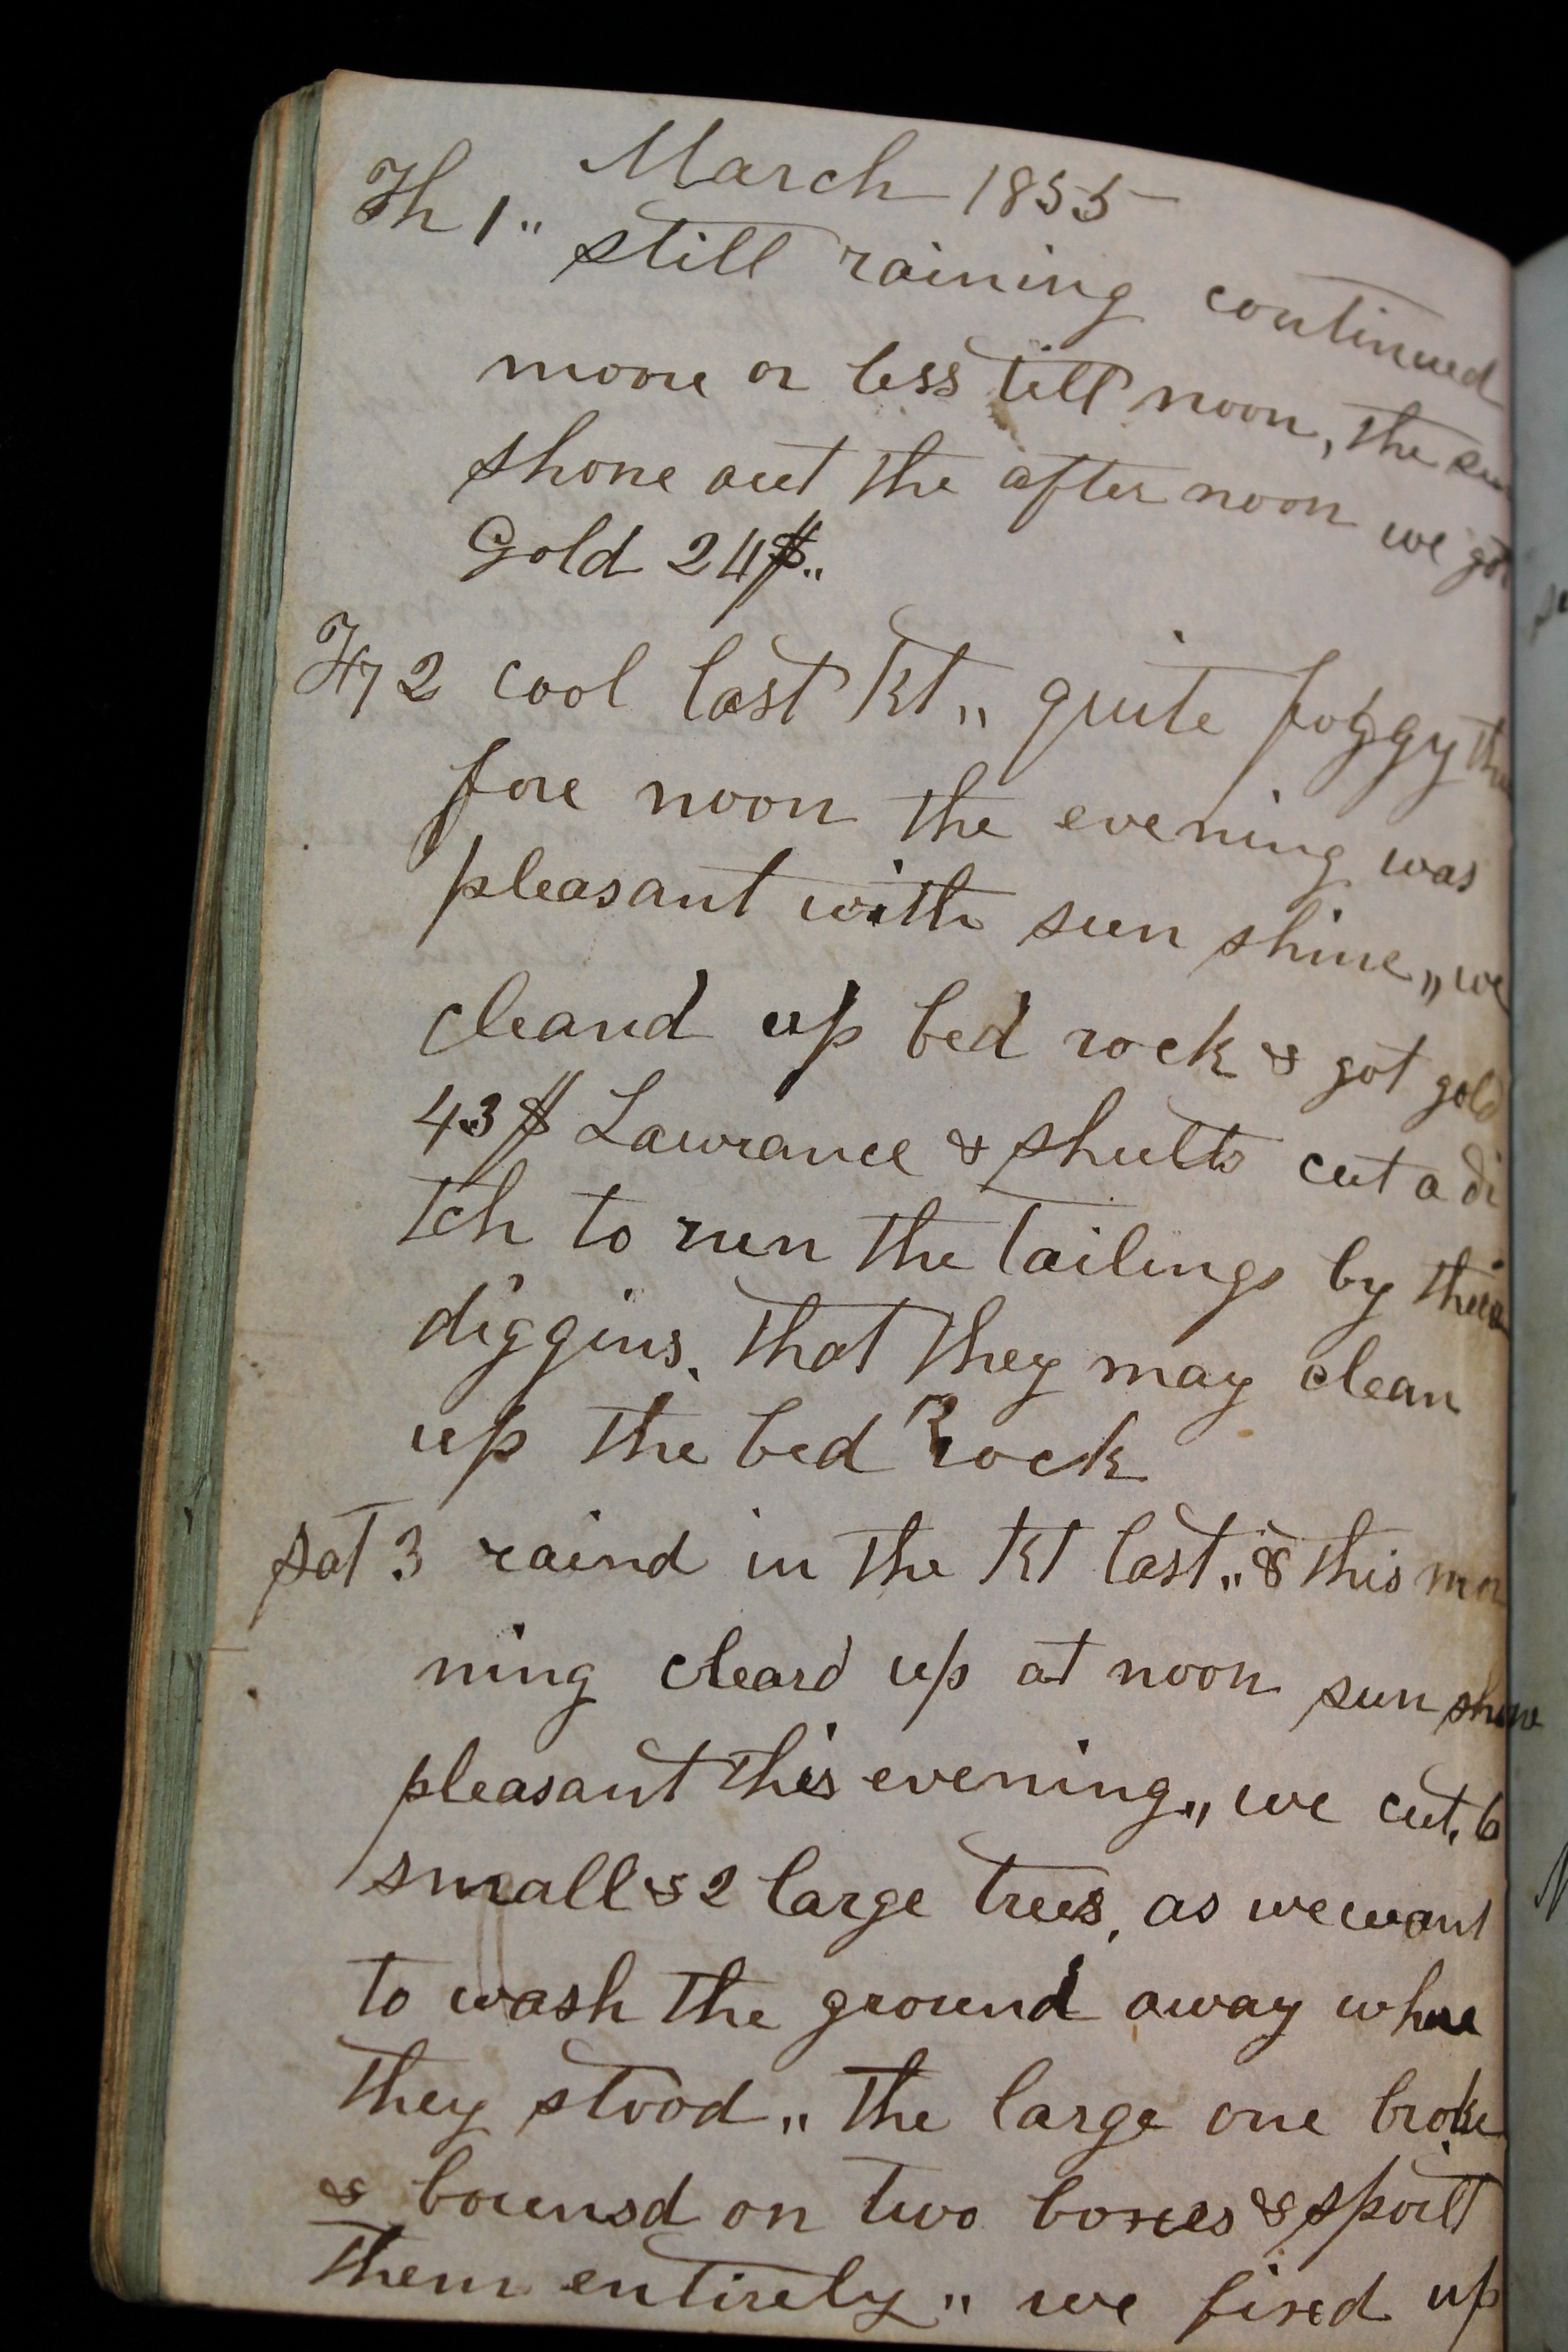 March 1855
Th 1„ still raining continued
moore or less till noon, the sun
shone out the after noon we got
Gold 24$„
Fry 2 cool last Nt„ quite foggy the
fore noon the evening was
pleasant with sun shine„ we
cleand up bed rock & got gold
43$ Lawrance & Shults cut a di
tch to run the tailings by their
diggins, that they may clean
up the bed rock
Sat 3 raind in the Nt last„ & this mor
ning cleard up at noon sun shone
pleasant this evening„ we cut, 6
small & 2 large trees, as we want
to wash the ground away where
they stood„ the large one broke
& bounsd on two boxes & spoilt
them entirely„ we fixed up